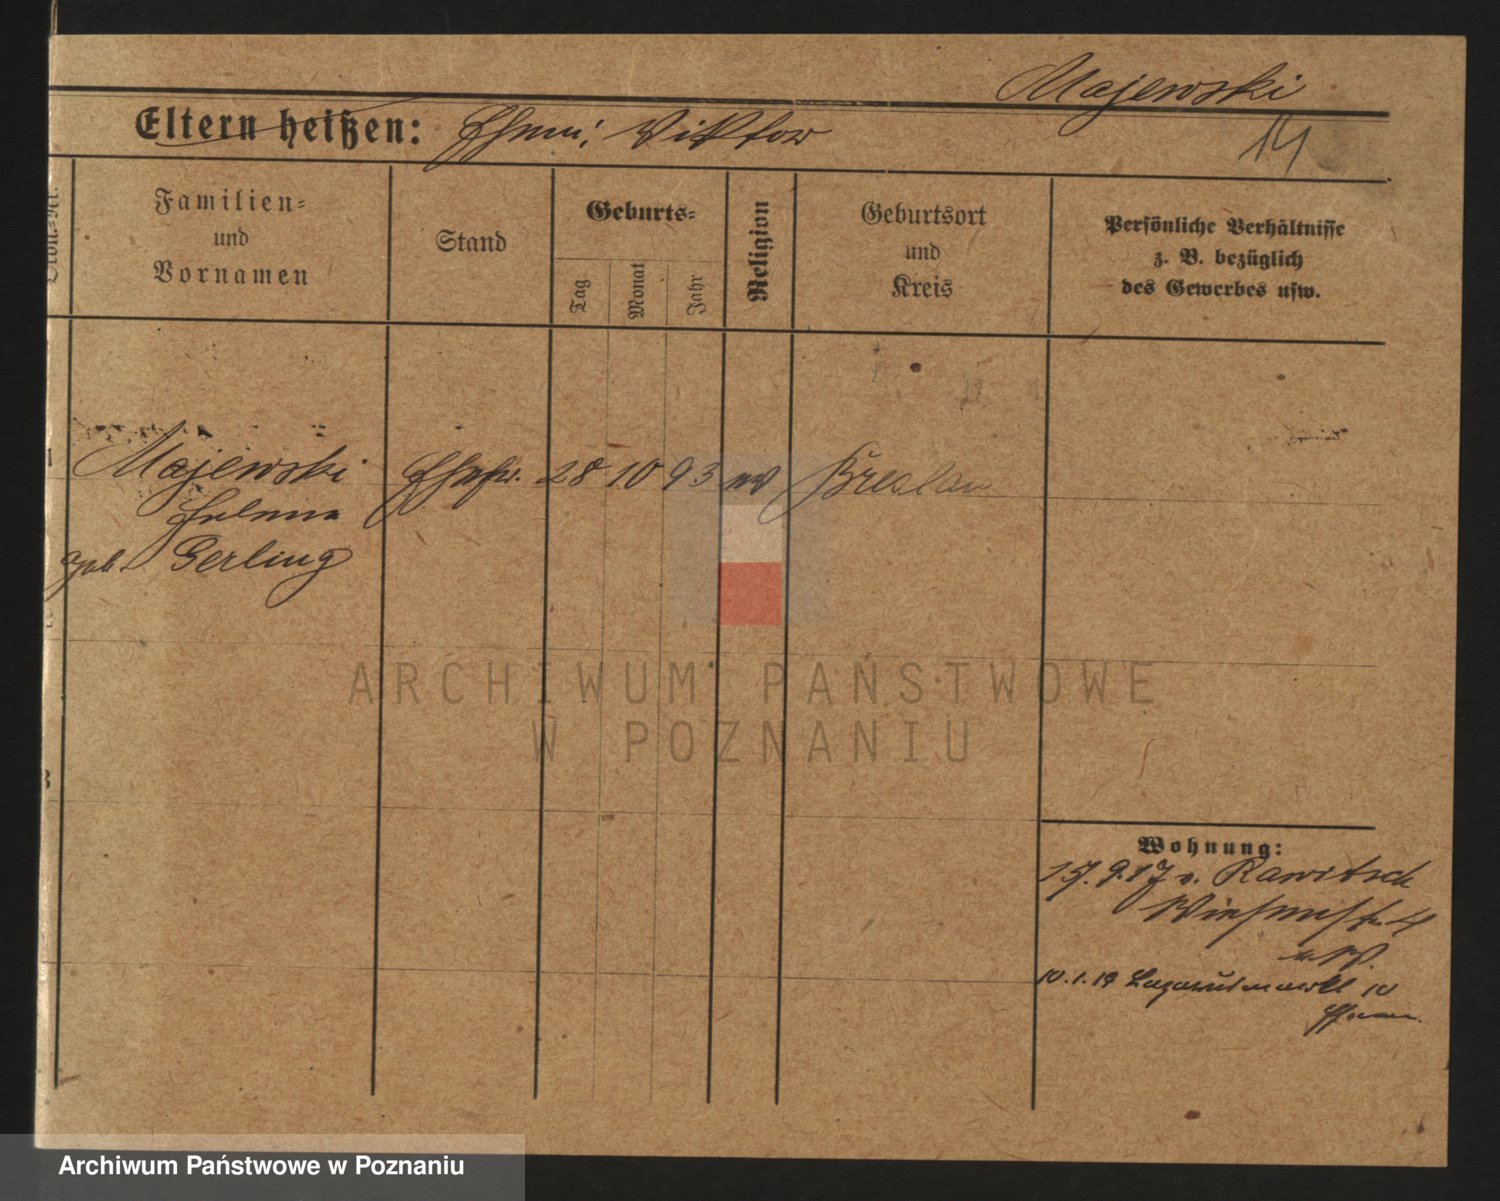 Majewski
14
Eltern heißen: Ehem: Viktor
Familien-
und
Vornamen
Stand
Geburts-
Tag
Monat
Jahr
Religion
Geburtsort
und
Kreis
Persönliche Verhältnisse
z. B. bezüglich
des Gewerbes usw.
Majewski Ehefr. 28 10 93 ev Breslau
Helene
geb. Gerling
3
Wohnung:
15.9.17 v. Rawitsch
Wiesenstr. 4
10.1.19 Lazarus
ARCHIWUM PAŃSTWOWE
W POZNANIU
Archiwum Państwowe w Poznaniu